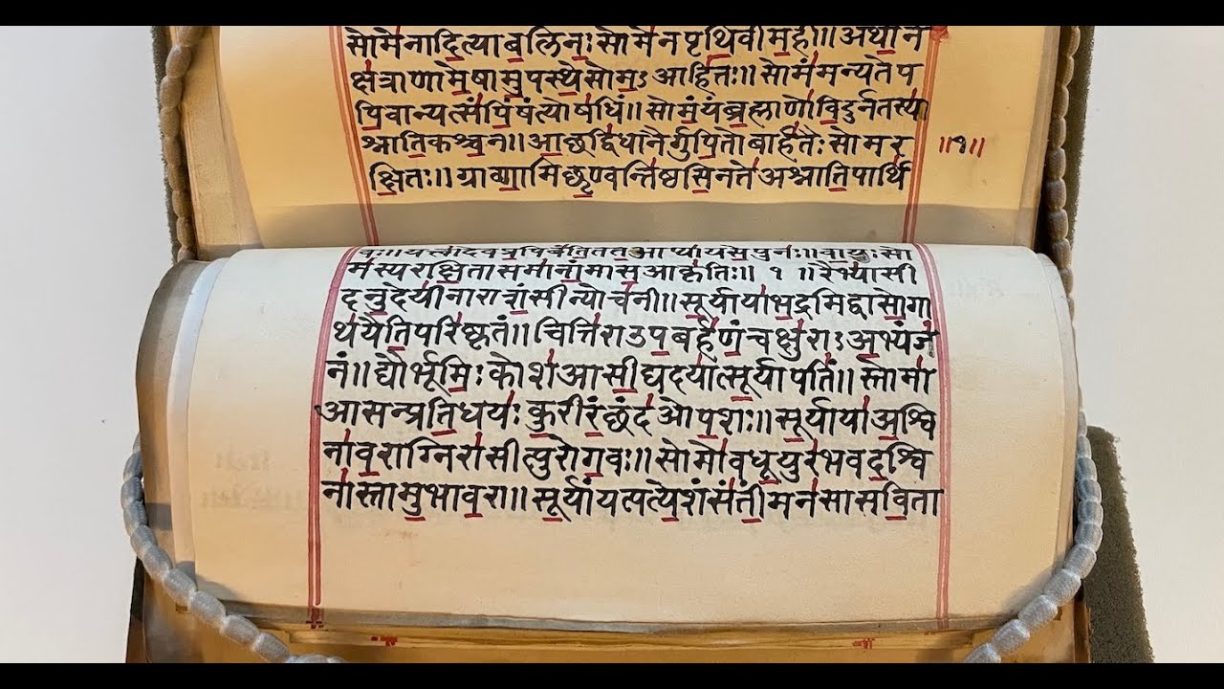 सोमेनादित्याबलिनः सोमेनपृथिवीमही॥ अथोन
क्षत्राणामेषामुपस्थेसोमऽ आहितः॥ सोमंमन्यतेप
पिवान्यत्संपिंषंत्योषधिं॥ सोमंयंब्रह्माणोविदुर्नतस्या
श्नातिकश्चन॥ आच्छद्विधानैर्गुपितोबार्हतैः सोमर ॥१॥
क्षितः॥ ग्राव्णामिच्छृण्वन्तिष्ठसिनते अश्नातिपार्थि
वः॥ यत्त्वादेवप्रपिबंतिततआप्यायसेपुनः॥ वायुःसो
मस्यरक्षितासमानांमासआकृतिः॥ १ ॥ रैभ्यासी
दनुदेयीनाराशंसीन्योचनी॥ सूर्यायाभद्रमिद्वासोगा
थयैतिपरिष्कृतं॥ चित्तिराउपबर्हणंचक्षुराऽ अभ्यंज
नं॥ द्यौर्भूमिः कोशआसीद्यदयात्सूर्यापतिं॥ स्तोमा
आसन्प्रतिधयः कुरीरंछंदओपशः॥ सूर्यायाअश्वि
नावराग्निरासीत्पुरोगवः॥ सोमोवधूयुरभवदश्वि
नास्तामुभावरा॥ सूर्यांयत्पत्येशंसंतींमनसासविता